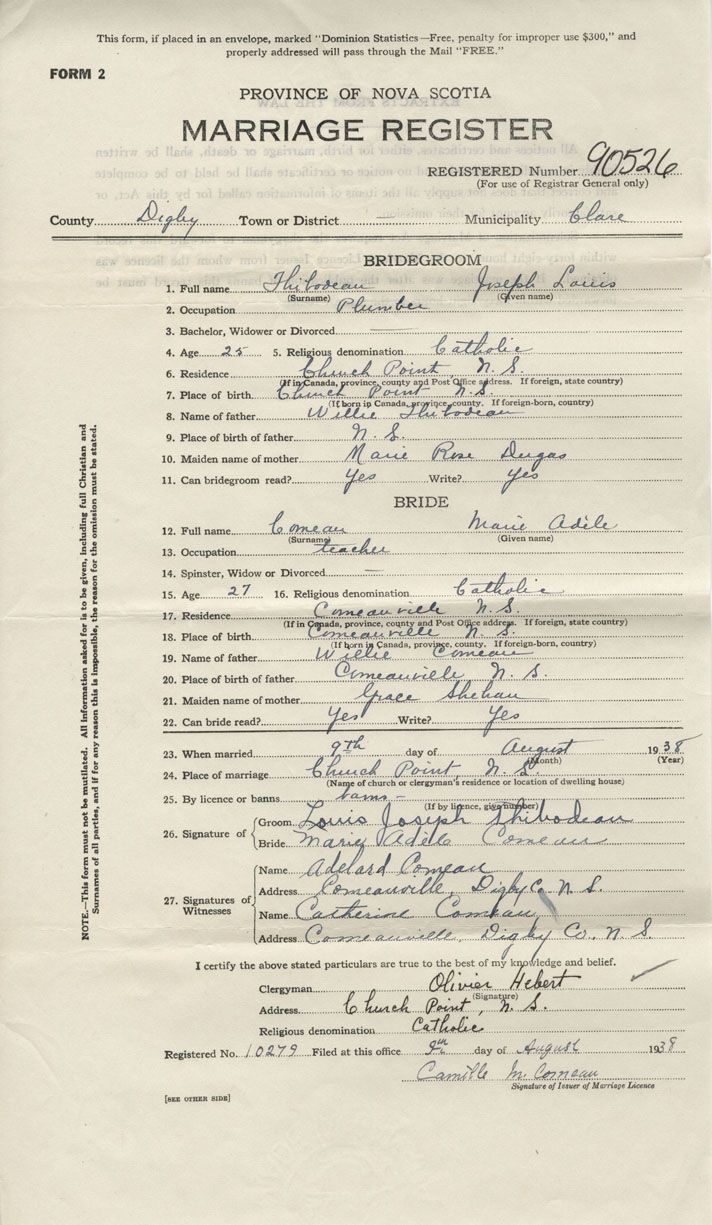 This form, if placed in an envelope, marked "Dominion Statistics—Free, penalty for improper use $300," and
properly addressed will pass through the Mail "FREE."
FORM 2
PROVINCE OF NOVA SCOTIA
MARRIAGE REGISTER
REGISTERED Number 90526
(For use of Registrar General only)
County Digby Town or District — Municipality Clare
BRIDEGROOM
1. Full name Thibodeau Joseph Louis
(Surname) (Given name)
2. Occupation Plumber
3. Bachelor, Widower or Divorced —
4. Age 25 5. Religious denomination Catholic
6. Residence Church Point, N. S.
(If in Canada, province, county and Post Office address. If foreign, state country)
7. Place of birth Church Point N.S.
(If born in Canada, province, county. If foreign-born, country)
8. Name of father Willie Thibodeau
9. Place of birth of father N. S.
10. Maiden name of mother Marie Rose Dugas
11. Can bridegroom read? Yes Write? Yes
BRIDE
12. Full name Comeau Marie Adèle
(Surname) (Given name)
13. Occupation teacher
14. Spinster, Widow or Divorced —
15. Age 27 16. Religious denomination Catholic
17. Residence Comeauville N. S.
(If in Canada, province, county and Post Office address. If foreign, state country)
18. Place of birth Comeauville N. S.
(If born in Canada, province, county. If foreign-born, country)
19. Name of father Willie Comeau
20. Place of birth of father Comeauville N. S.
21. Maiden name of mother Grace Shehan
22. Can bride read? Yes Write? Yes
23. When married 9th day of August 1938
(Month) (Year)
24. Place of marriage Church Point, N. S.
(Name of church or clergyman's residence or location of dwelling house)
25. By licence or banns banns -
(If by licence, give number)
26. Signature of Groom Louis Joseph Thibodeau
Bride Marie Adèle Comeau
27. Signatures of Witnesses
Name Adelard Comeau
Address Comeauville, Digby Co. N. S.
Name Catherine Comeau
Address Comeauville, Digby Co. N S.
I certify the above stated particulars are true to the best of my knowledge and belief.
Clergyman Olivier Hebert
(Signature)
Address Church Point, N. S.
Religious denomination Catholic
Registered No. 10279 Filed at this office 9th day of August 1938
Camille M. Comeau
Signature of Issuer of Marriage Licence
[SEE OTHER SIDE]
NOTE.—This form must not be mutilated. All information asked for is to be given, including full Christian and
Surnames of all parties, and if for any reason this is impossible, the reason for the omission must be stated.